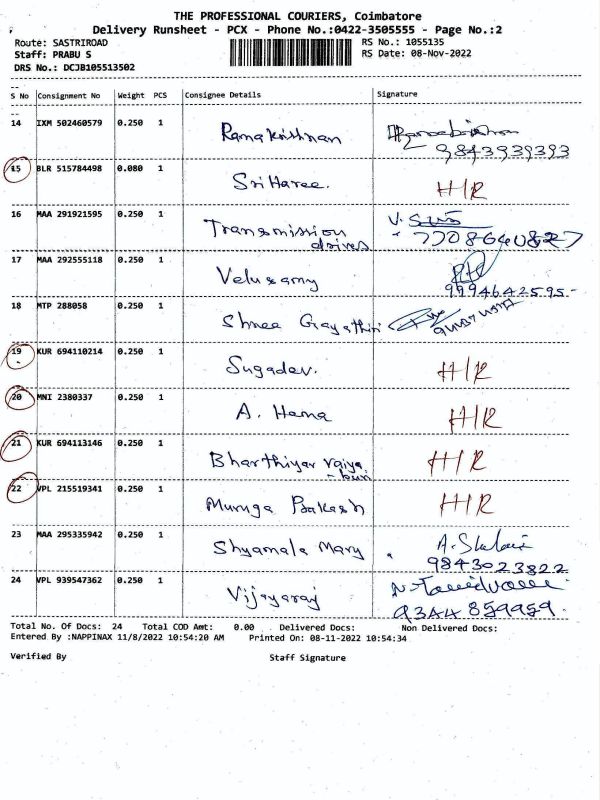 THE PROFESSIONAL COURIERS, Coimbatore
Delivery Runsheet - PCX - Phone No.:0422-3505555 - Page No.:2
Route: SASTRIROAD RS No.: 1055135
Staff: PRABU S RS Date: 08-Nov-2022
DRS No.: DCJB105513502
S No Consignment No Weight PCS Consignee Details Signature
14 IXM 502460579 0.250 1 Ramakrishnan
9843939393
15 BLR 515784498 0.080 1 Sri Haree. H/R
16 MAA 291921595 0.250 1 Transmission drives
7708640827
17 MAA 292555118 0.250 1 Velusamy
9994642595-
18 MTP 288058 0.250 1 Shree Gayathiri
19 KUR 694110214 0.250 1 Sugadev. H/R
20 MNI 2380337 0.250 1 A. Hema H/R
21 KUR 694113146 0.250 1 Bharthiyar H/R
22 VPL 215519341 0.250 1 Muruga Prakash H/R
23 MAA 295335942 0.250 1 Shyamala Mary
9843023822
24 VPL 939547362 0.250 1 Vijayaraj
9344 859959.
Total No. Of Docs: 24 Total COD Amt: 0.00 Delivered Docs: Non Delivered Docs:
Entered By :NAPPINAX 11/8/2022 10:54:20 AM Printed On: 08-11-2022 10:54:34
Verified By Staff Signature